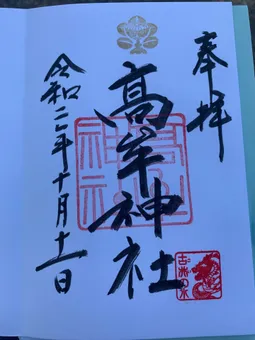 奉拝
高牟神社
令和二年十月十一日
高牟
神社
古井の水